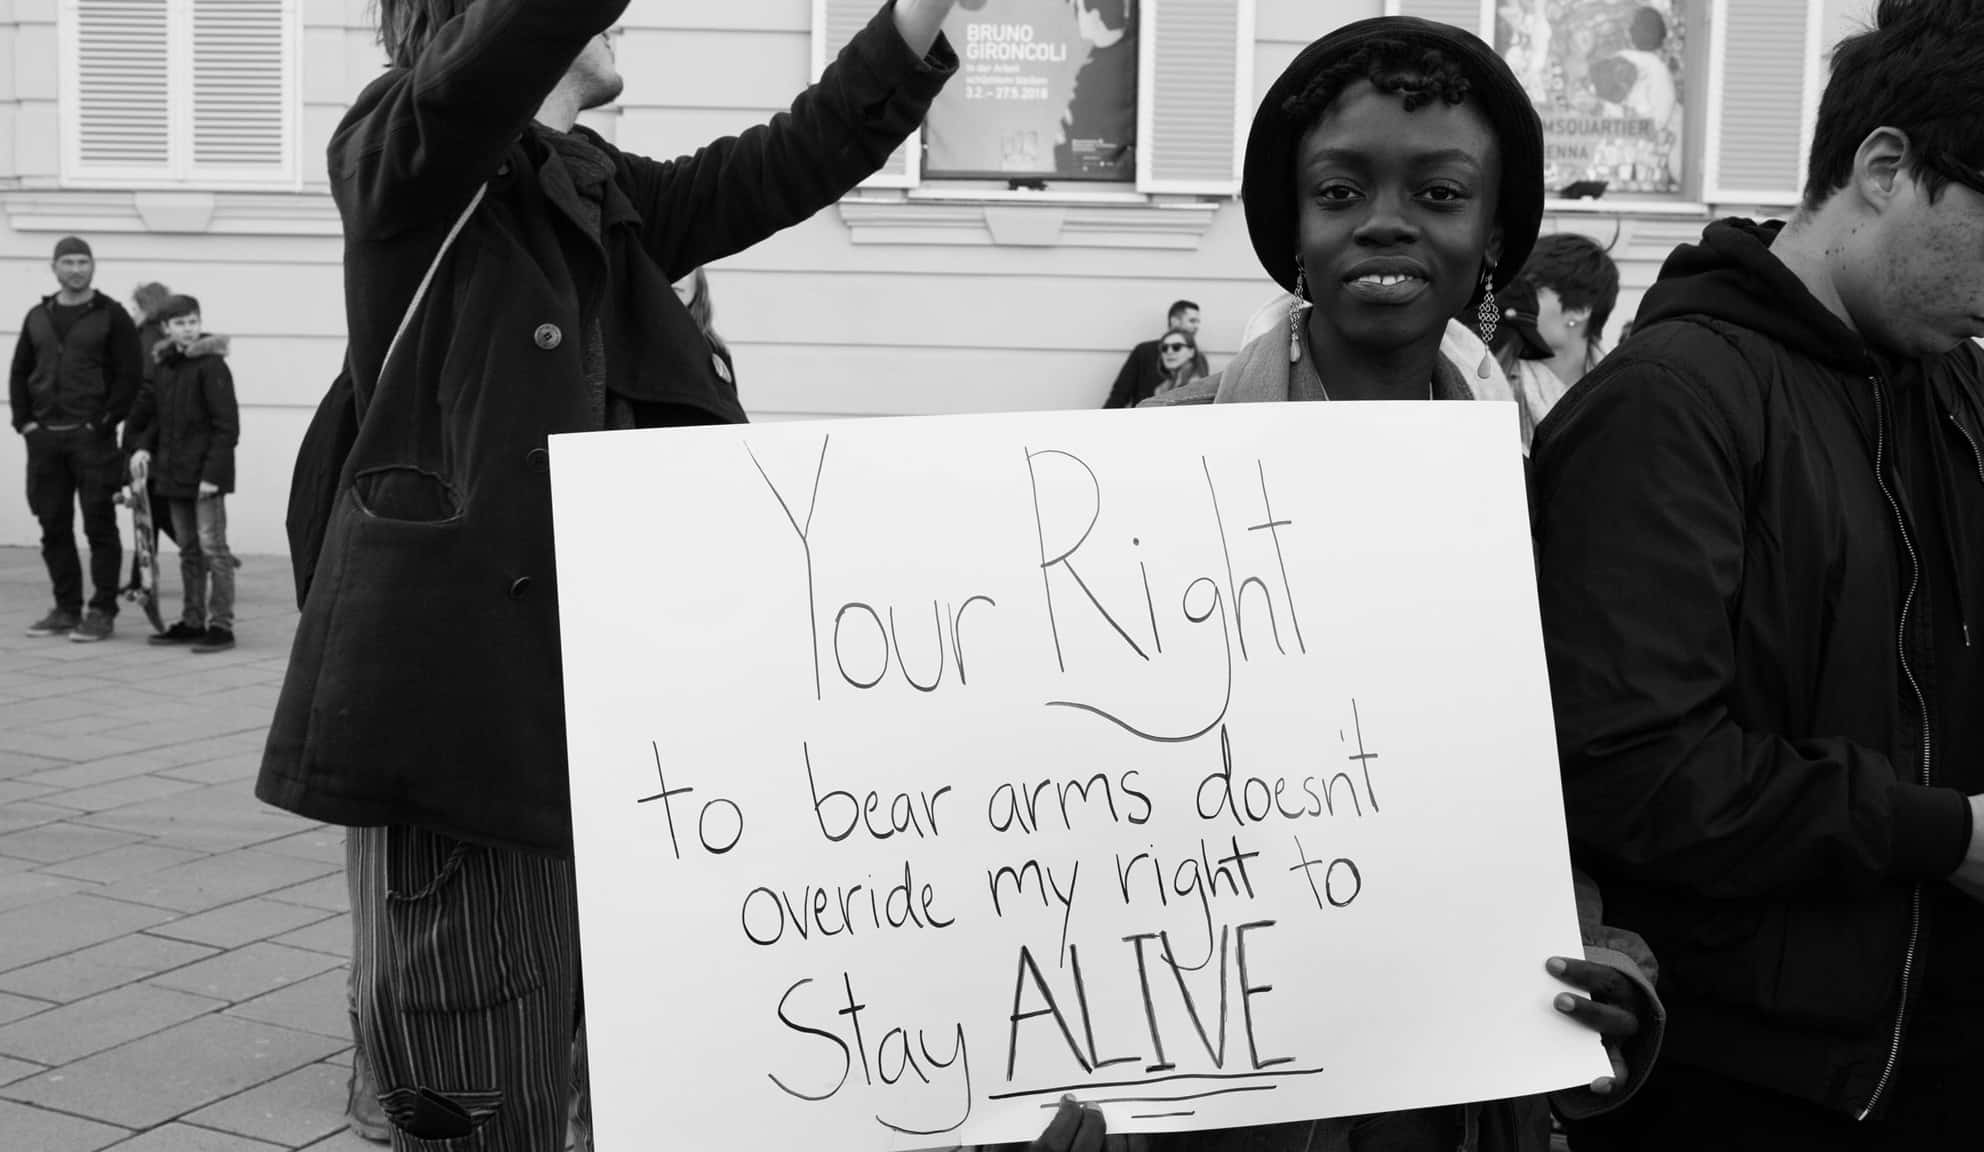 BRUNO
GIRONCOLI
In der Arbeit
schüchtern bleiben
3.2. – 27.5.2018
MSQUARTIER
ENNA
Your Right
to bear arms doesn't
overide my right to
Stay ALIVE